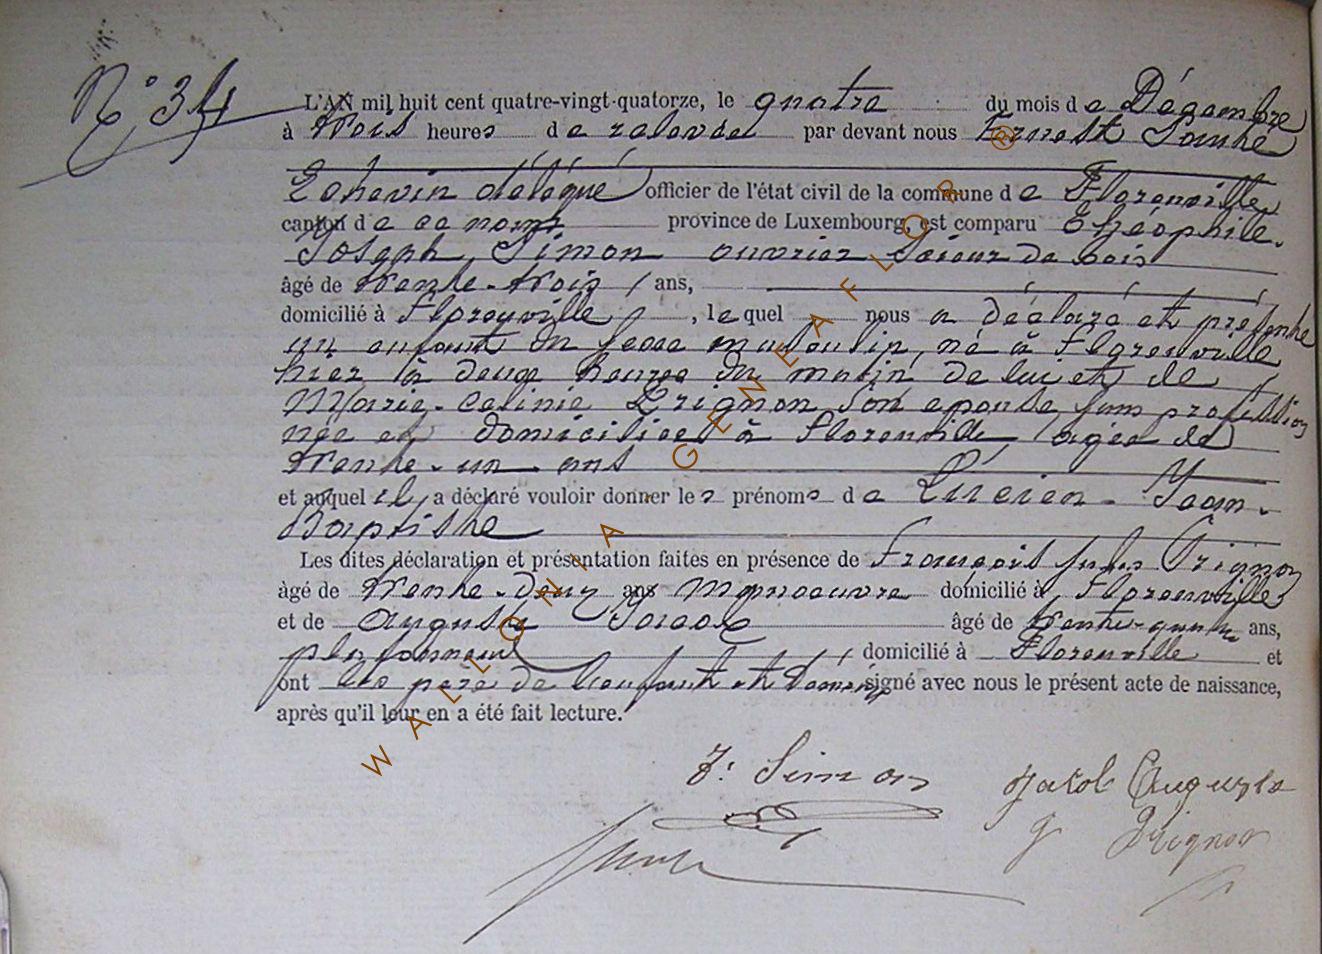 N° 34
L'AN mil huit cent quatre-vingt-quatorze, le quatre du mois de Décembre
à trois heures de relevée par devant nous Ernest
Echevin délégué officier de l'état civil de la commune de Florenville
canton de ce nom, province de Luxembourg, est comparu Théophile-
Joseph Simon ouvrier scieur de bois
âgé de trente-trois ans,
domicilié à Florenville, lequel nous a déclaré et présenté
un enfant du sexe masculin, né à Florenville
hier à deux heures du matin de lui et de
Marie-Celinie Prignon son épouse, sans profession
née et domiciliée à Florenville âgée de
trente-un ans
et auquel il a déclaré vouloir donner les prénoms de Lucien-Jean-
Baptiste
Les dites déclaration et présentation faites en présence de François Jules Prignon
âgé de trente-deux ans Manoeuvre domicilié à Florenville
et de Auguste Jacob âgé de trente-quatre ans,
plafonneur, domicilié à Florenville et
ont le père de l'enfant et témoins signé avec nous le présent acte de naissance,
après qu'il leur en a été fait lecture.
T. Simon Jacob Auguste
J Prignon
WALLONIA GENEAFLOR ®